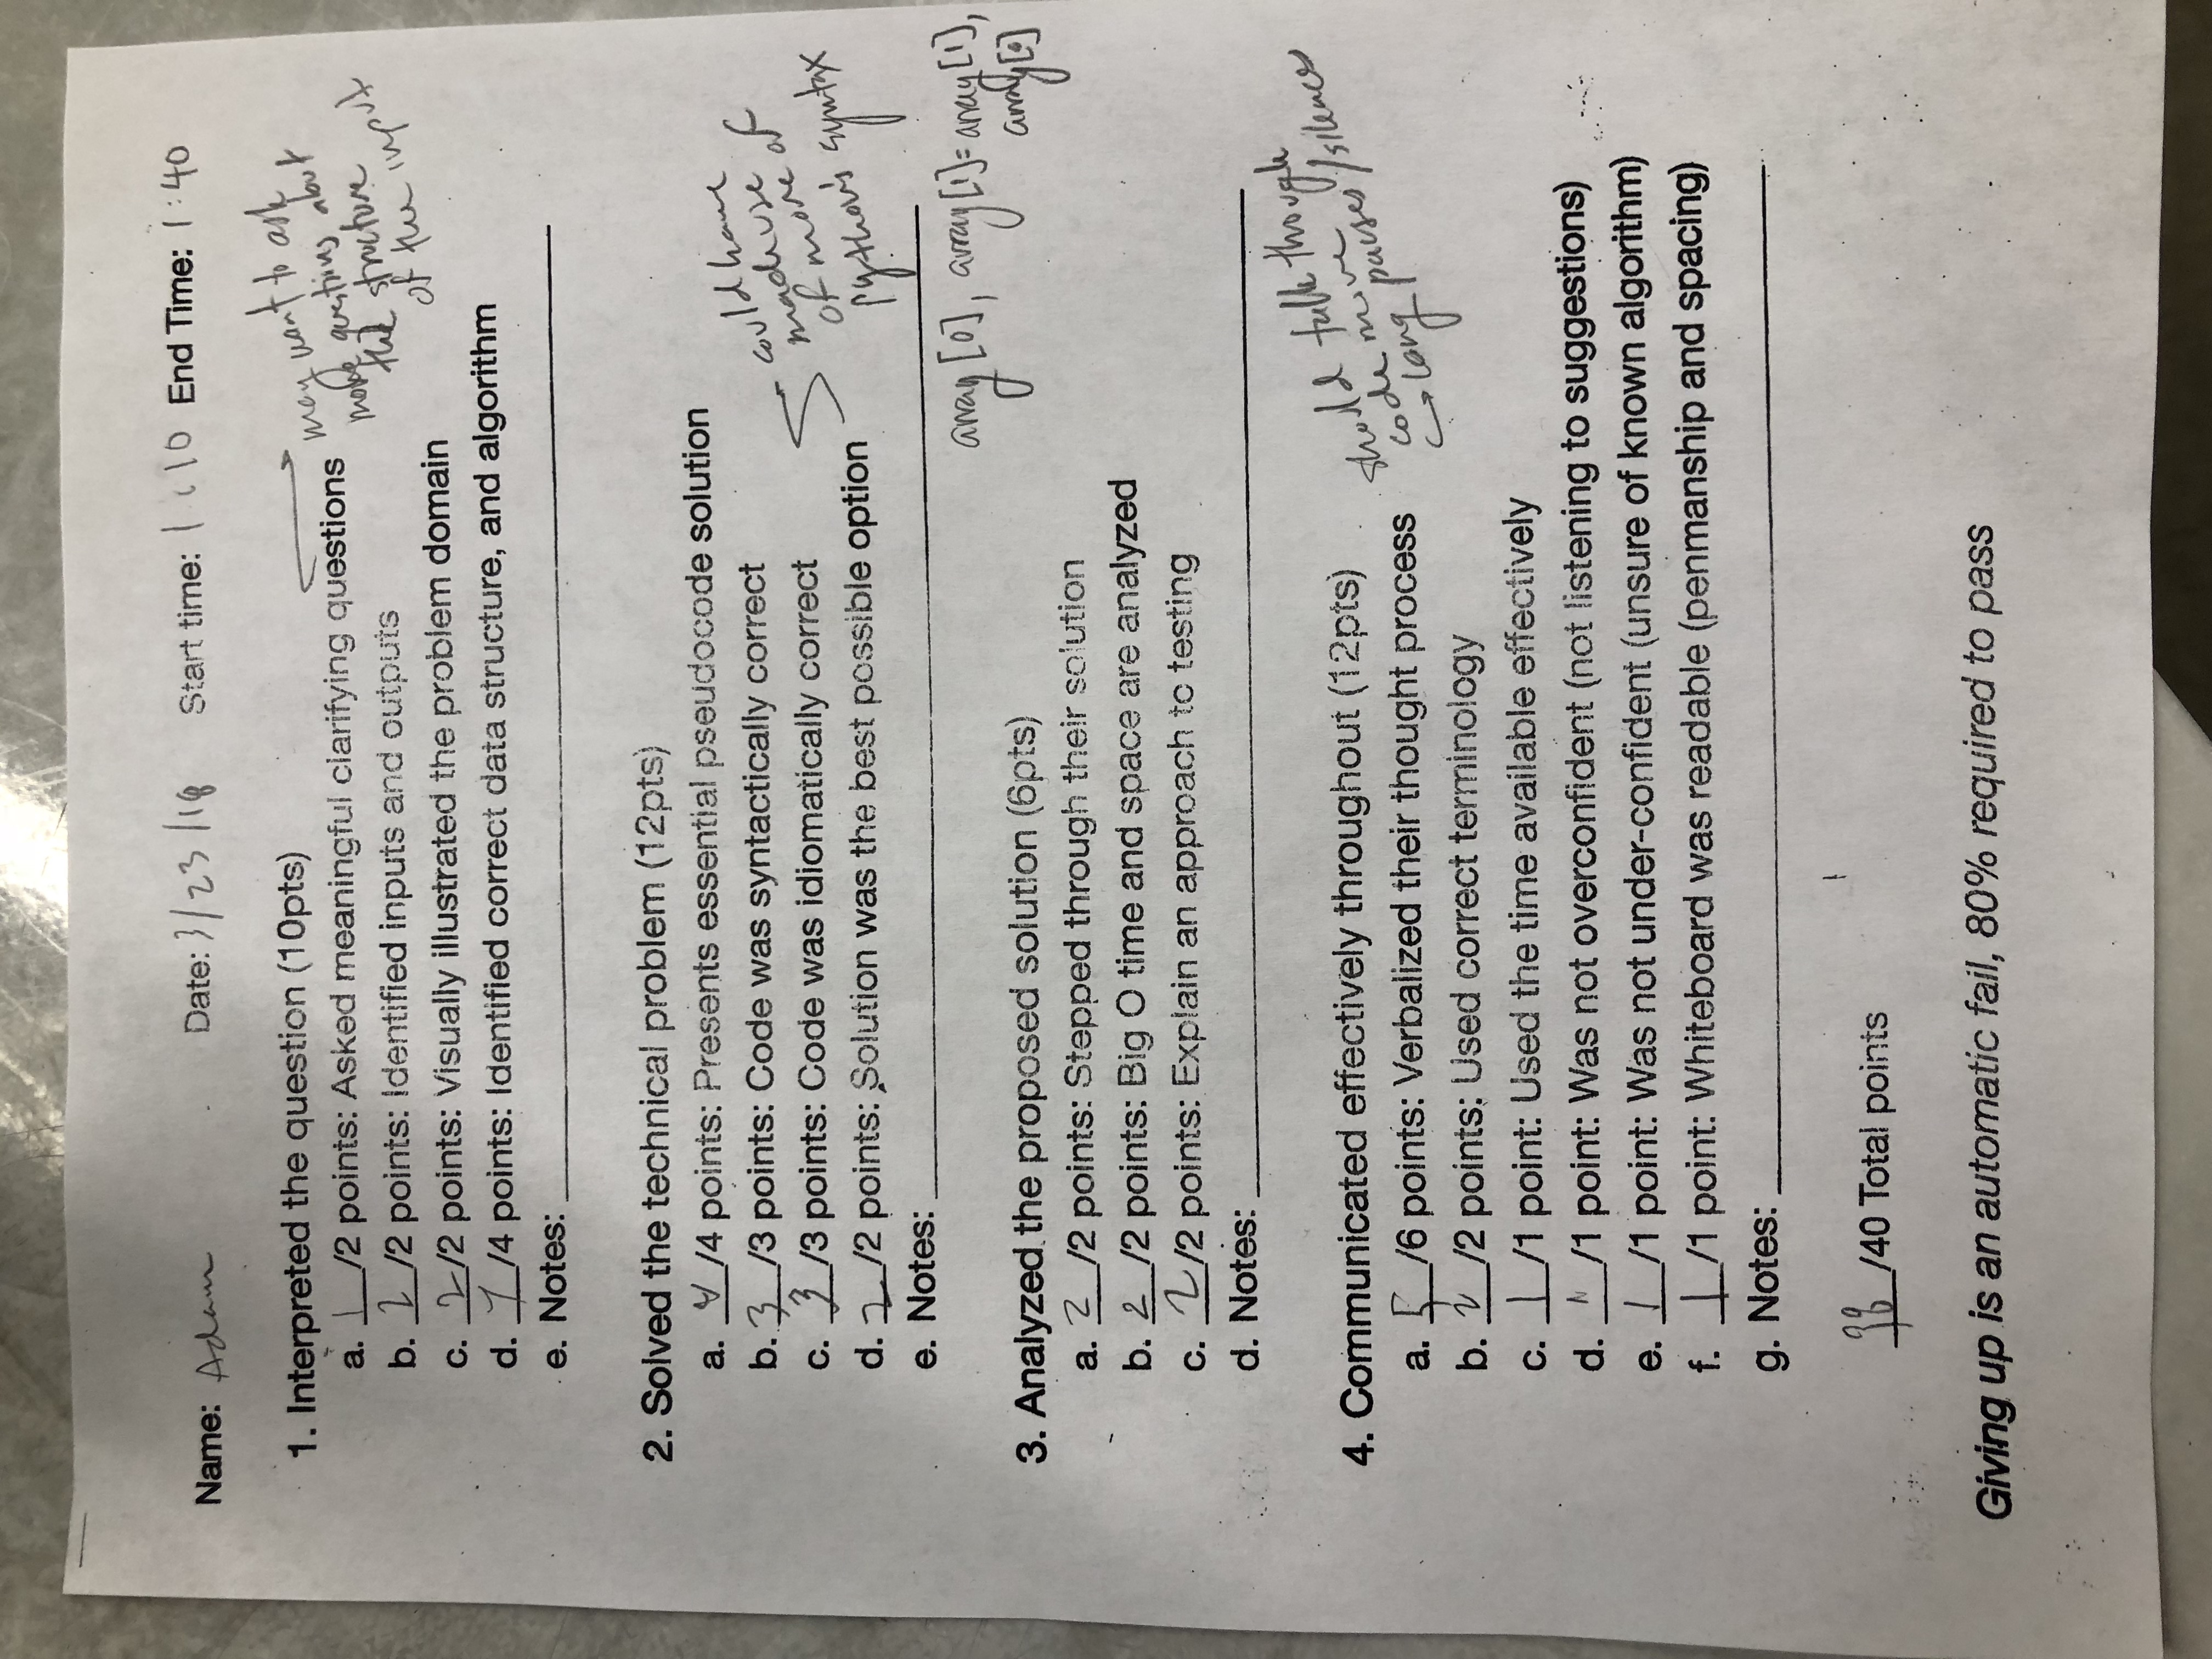 Name: Adam Date: 3/23/18 Start time: 1:10 End Time: 1:40
1. Interpreted the question (10pts)
a. 1/2 points: Asked meaningful clarifying questions
may want to ask
more questions about
the structure
of the input
b. 2/2 points: Identified inputs and outputs
c. 2/2 points: Visually illustrated the problem domain
d. /4 points: Identified correct data structure, and algorithm
e. Notes:
2. Solved the technical problem (12pts)
a. 4/4 points: Presents essential pseudocode solution
b. 3/3 points: Code was syntactically correct
c. 3/3 points: Code was idiomatically correct
d. 2/2 points: Solution was the best possible option
could have
made use
of more of
Python's syntax
e. Notes:
array[0], array[1]= array[1],
array[0]
3. Analyzed the proposed solution (6pts)
a. 2/2 points: Stepped through their solution
b. 2/2 points: Big O time and space are analyzed
c. 2/2 points: Explain an approach to testing
d. Notes:
4. Communicated effectively throughout (12pts)
should talk through
code more
→ long pauses/silences
a. 5/6 points: Verbalized their thought process
b. 2/2 points: Used correct terminology
c. 1/1 point: Used the time available effectively
d. 1/1 point: Was not overconfident (not listening to suggestions)
e. 1/1 point: Was not under-confident (unsure of known algorithm)
f. 1/1 point: Whiteboard was readable (penmanship and spacing)
g. Notes:
38/40 Total points
Giving up is an automatic fail, 80% required to pass